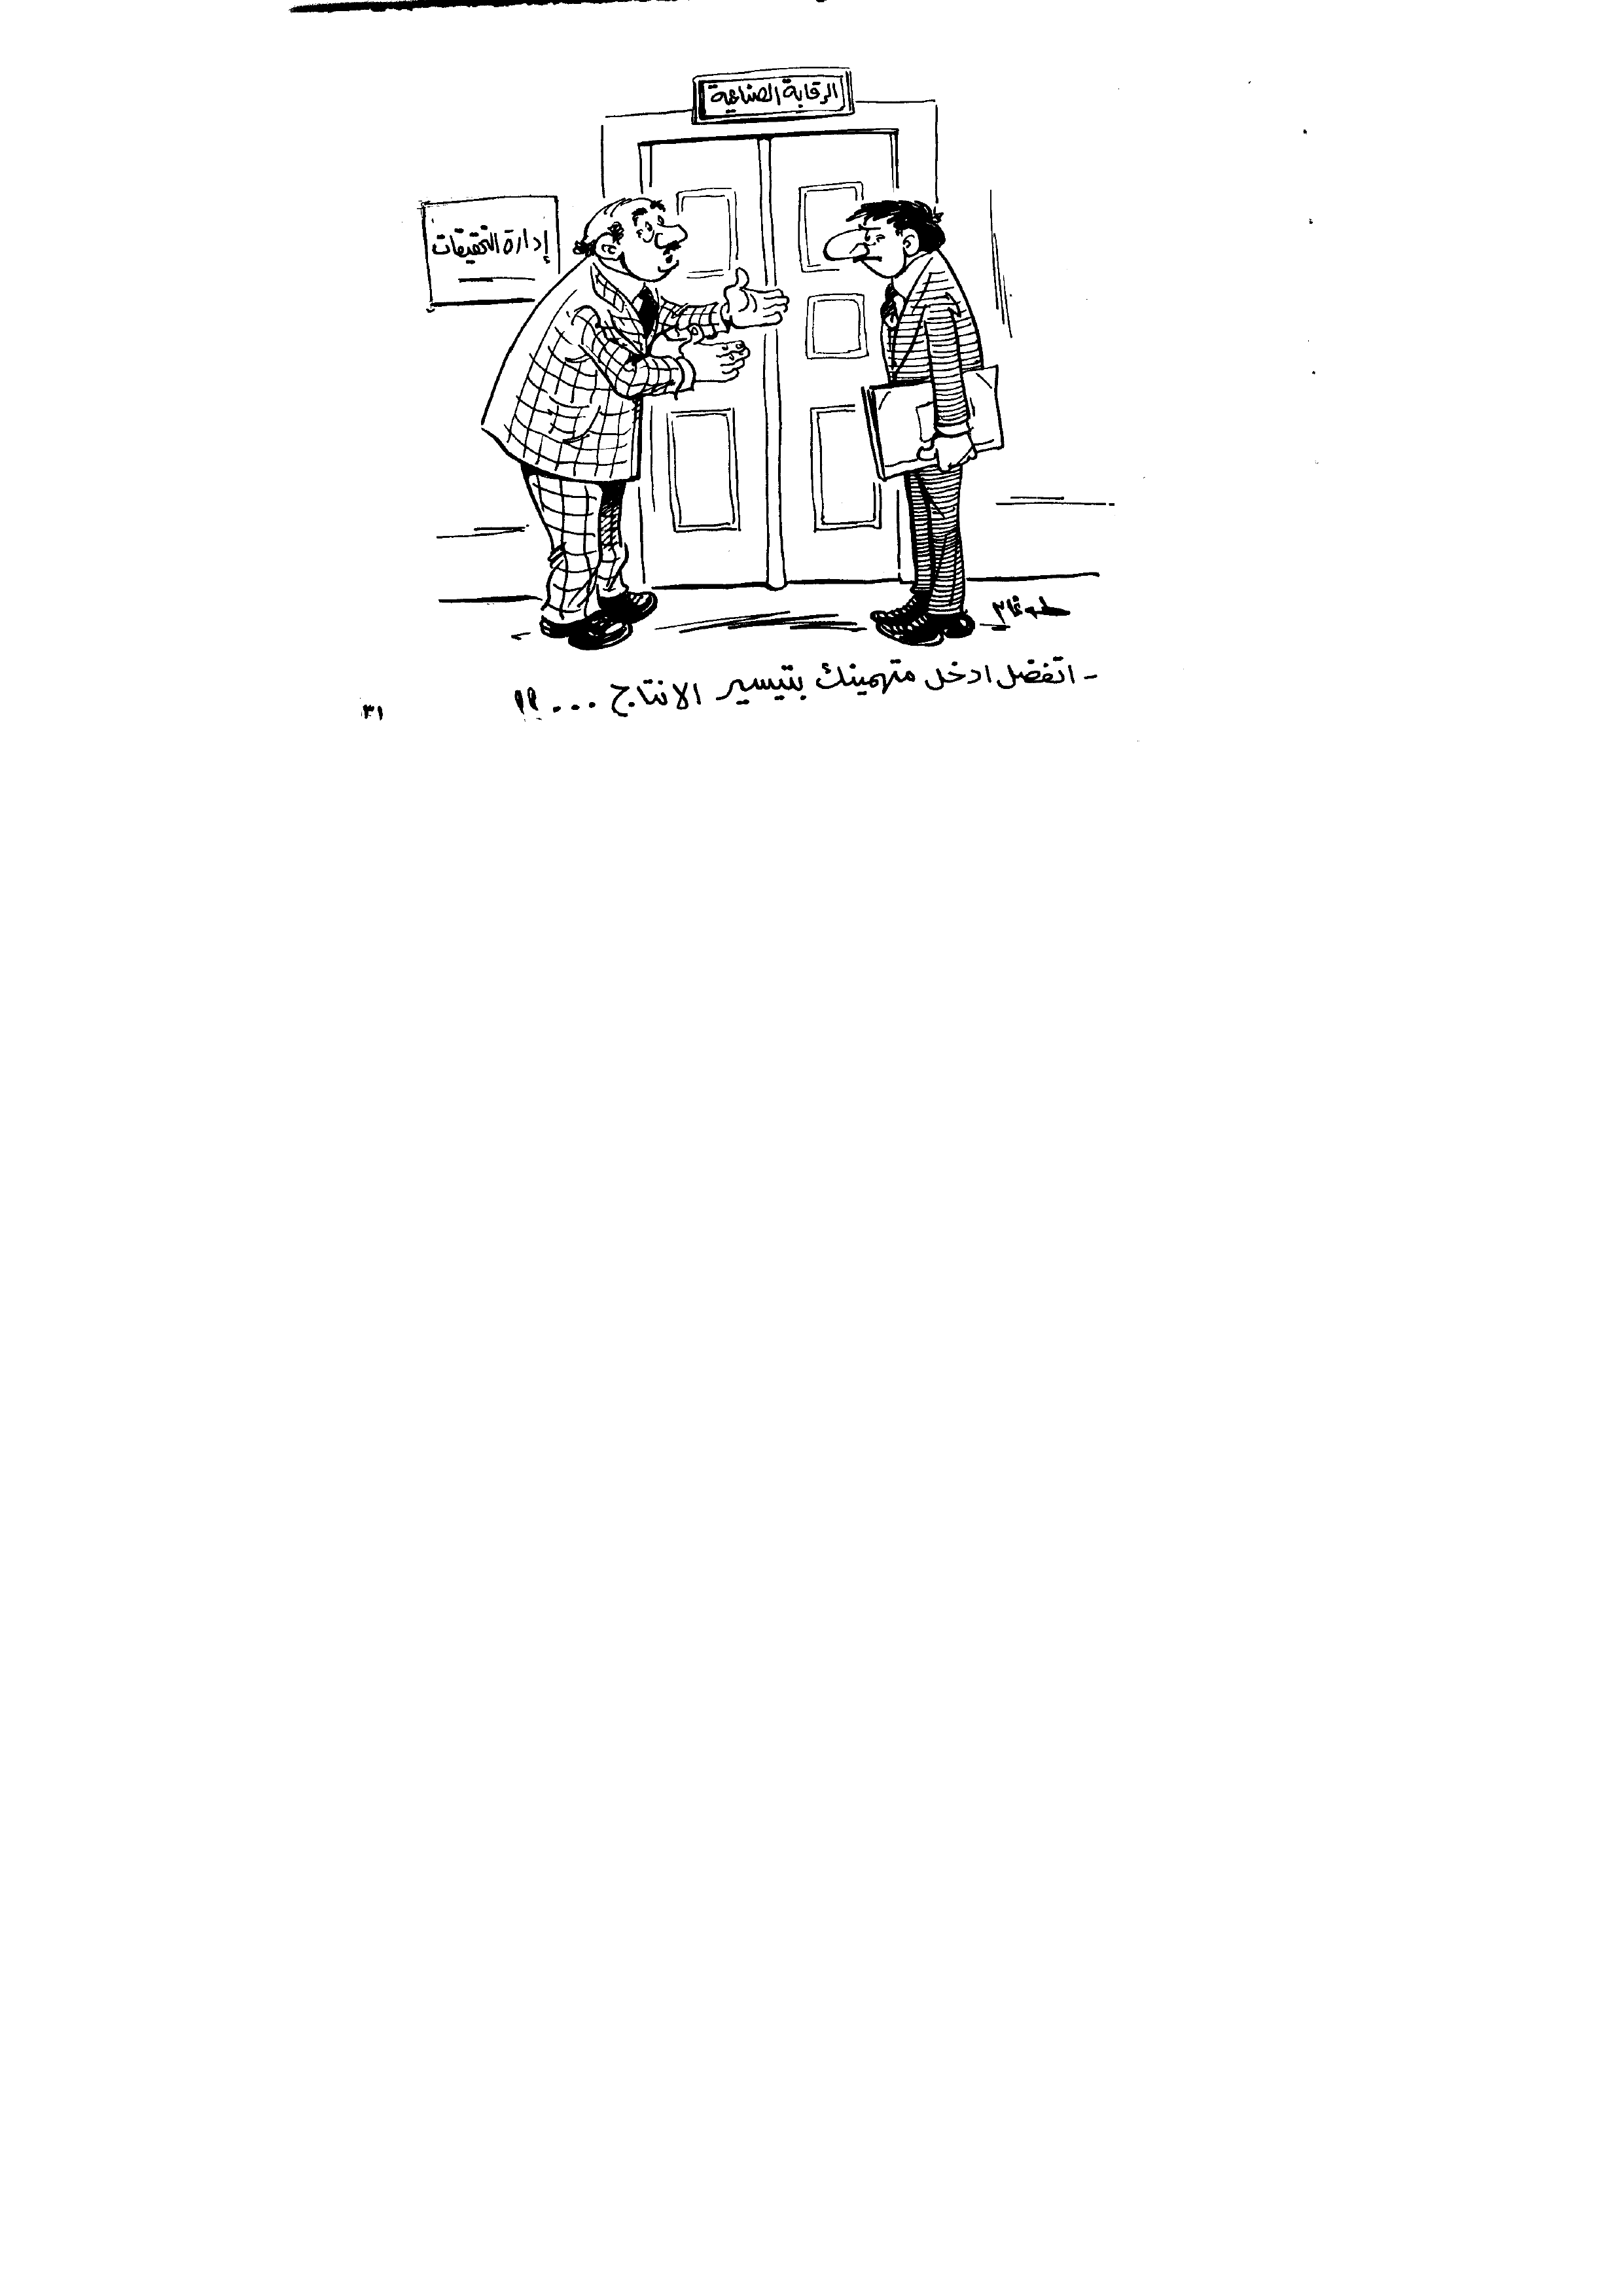 الرقابة الصناعية
إدارة التحقيقات
- اتفضل ادخل متهمينك بتيسير الانتاج ...!!
٣١